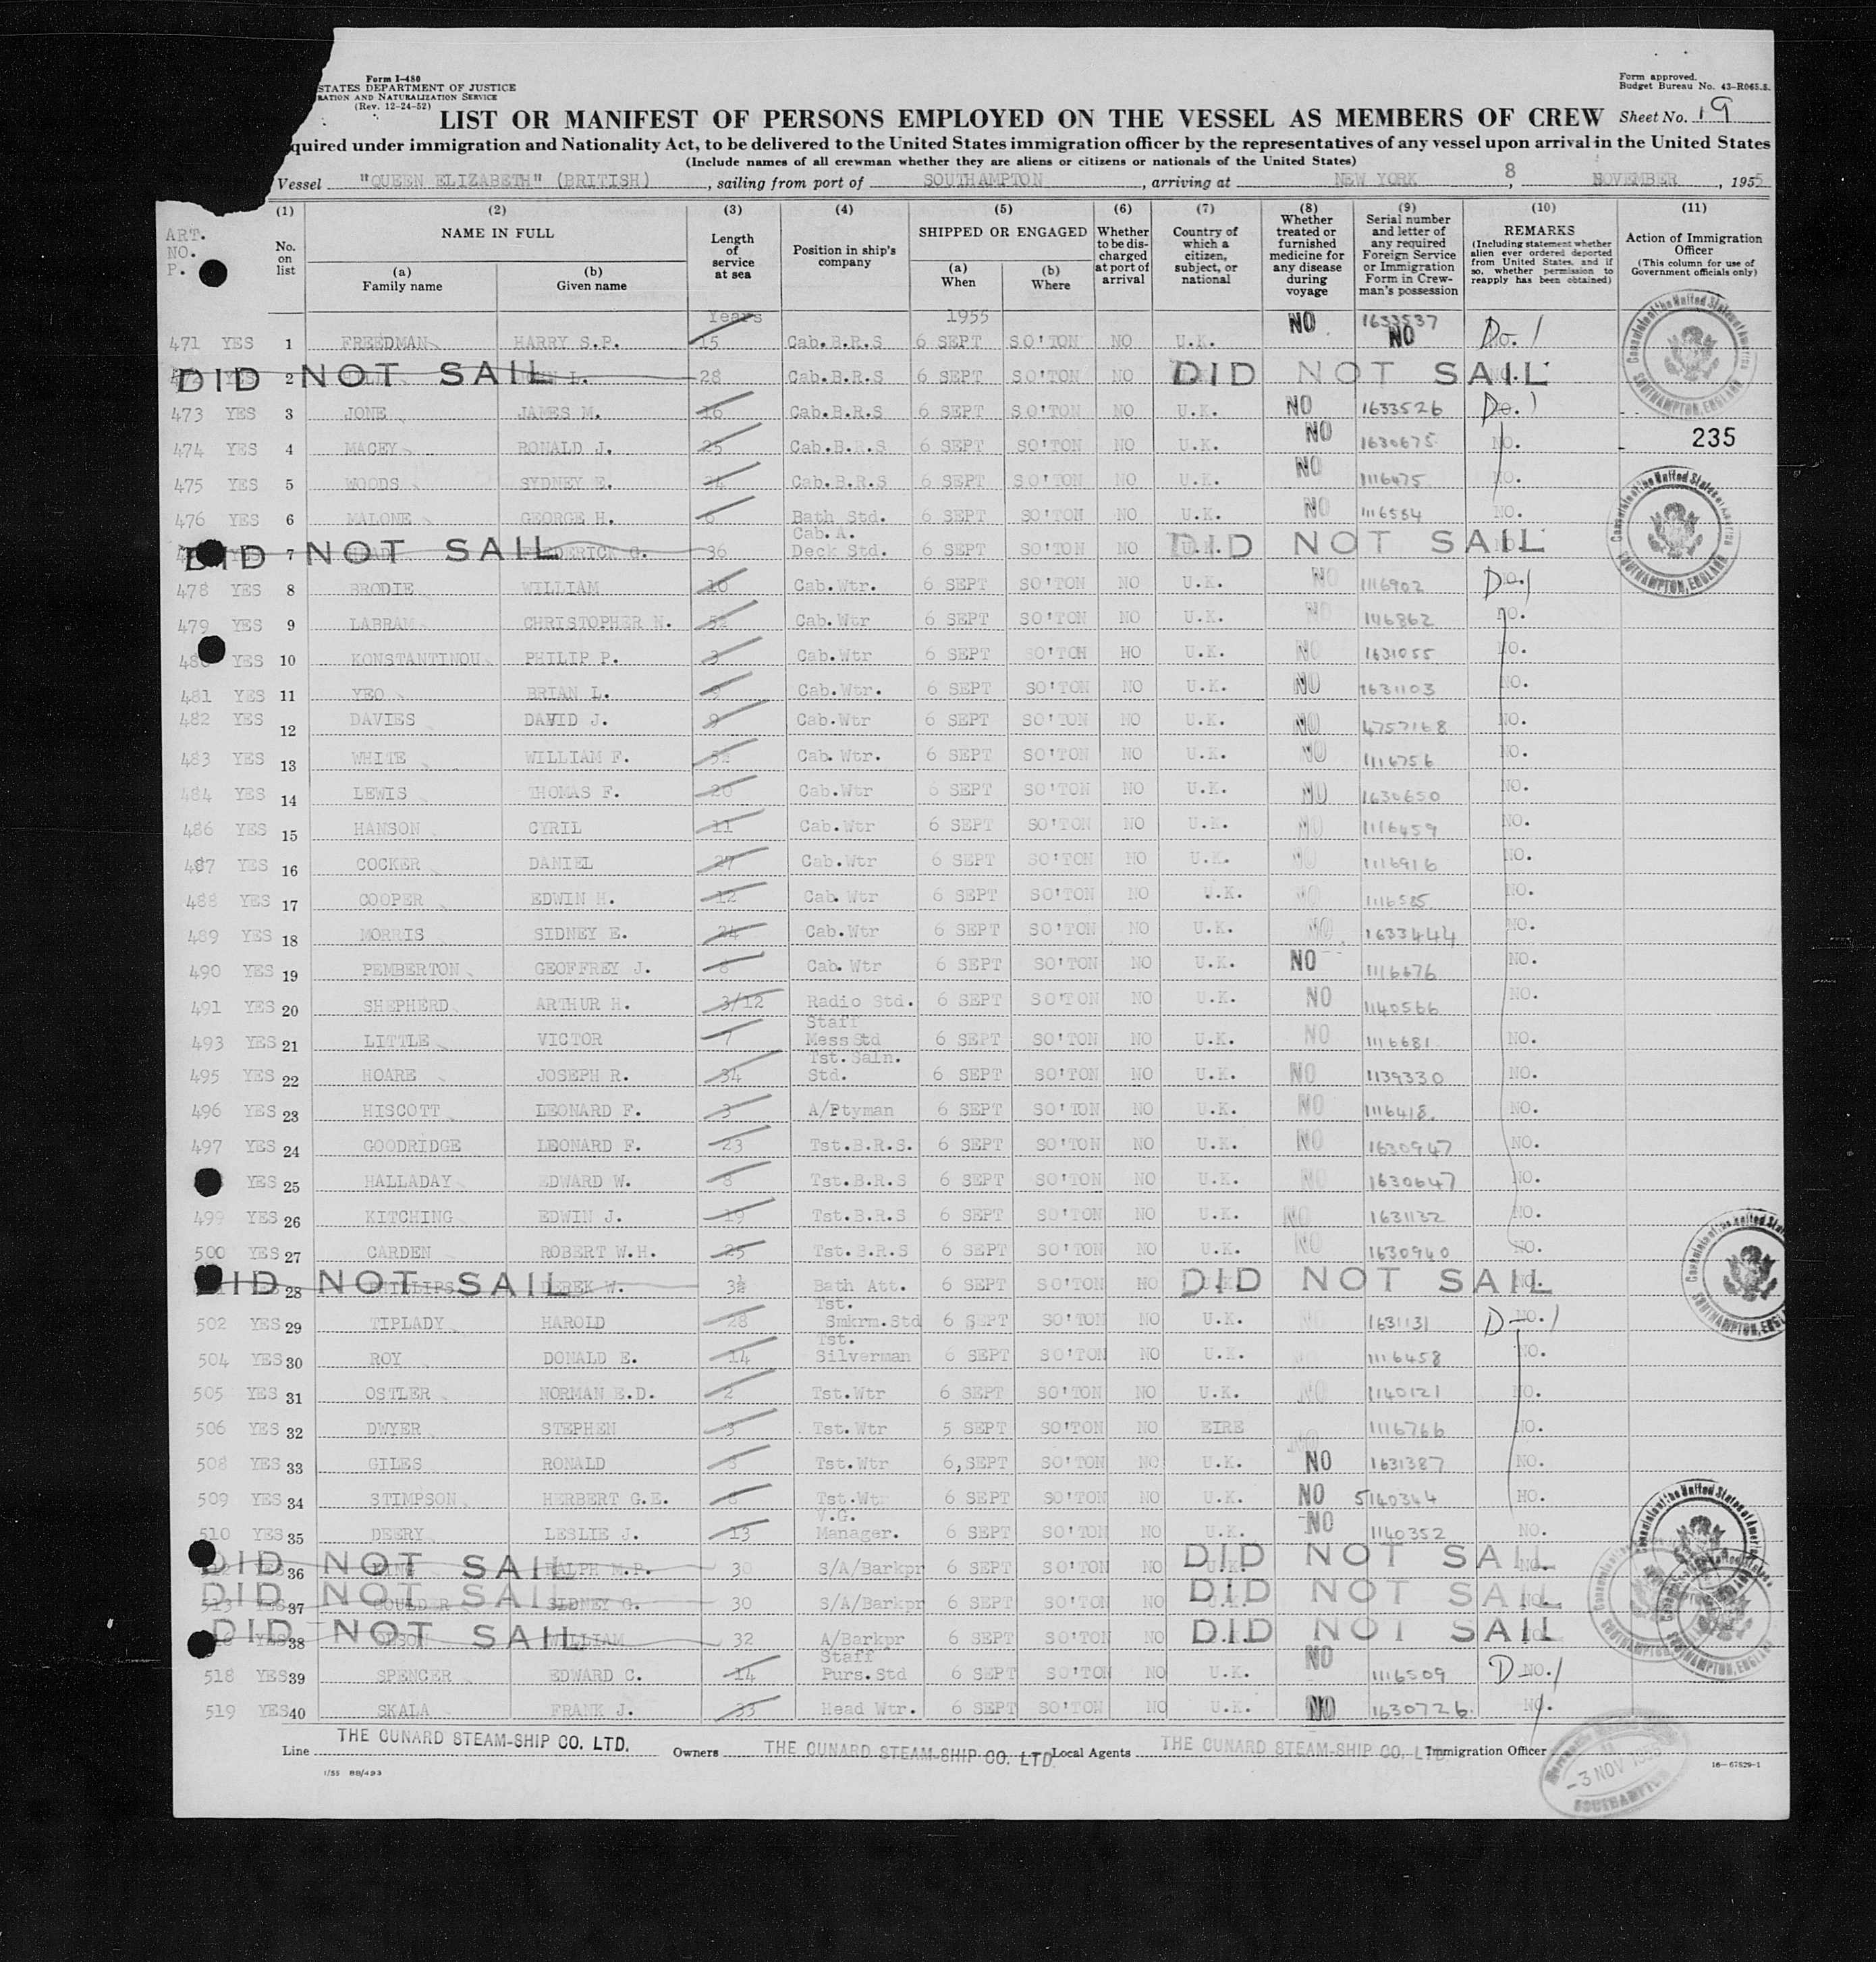 Form I-480
STATES DEPARTMENT OF JUSTICE
RATION AND NATURALIZATION SERVICE
(Rev. 12-24-52)
Form approved.
Budget Bureau No. 43-R065.5.
LIST OR MANIFEST OF PERSONS EMPLOYED ON THE VESSEL AS MEMBERS OF CREW Sheet No. 19
quired under immigration and Nationality Act, to be delivered to the United States immigration officer by the representatives of any vessel upon arrival in the United States
(Include names of all crewman whether they are aliens or citizens or nationals of the United States)
Vessel "QUEEN ELIZABETH" (BRITISH), sailing from port of SOUTHAMPTON, arriving at NEW YORK 8, NOVEMBER, 1955
ART. NO. P.
(1) No. on list
(2) NAME IN FULL (a) Family name (b) Given name
(3) Length of service at sea
(4) Position in ship's company
(5) SHIPPED OR ENGAGED (a) When (b) Where
(6) Whether to be discharged at port of arrival
(7) Country of which a citizen, subject, or national
(8) Whether treated or furnished medicine for any disease during voyage
(9) Serial number and letter of any required Foreign Service or Immigration Form in Crewman's possession
(10) REMARKS (Including statement whether alien ever ordered deported from United States, and if so, whether permission to reapply has been obtained)
(11) Action of Immigration Officer (This column for use of Government officials only)
Years 1955
471 YES 1 FREEDMAN HARRY S.P. 15 Cab.B.R.S 6 SEPT SO'TON NO U.K. NO 1633537 NO D-1
2 DID NOT SAIL L. 28 Cab.B.R.S 6 SEPT SO'TON NO DID NOT SAIL
473 YES 3 JONE JAMES M. 16 Cab.B.R.S 6 SEPT SO'TON NO U.K. NO 1633526 D-1
474 YES 4 MACEY RONALD J. 25 Cab.B.R.S 6 SEPT SO'TON NO U.K. NO 1630675 NO. 235
475 YES 5 WOODS SYDNEY E. 24 Cab.B.R.S 6 SEPT SO'TON NO U.K. NO 1116475 NO.
476 YES 6 MALONE GEORGE H. 6 Bath Std. 6 SEPT SO'TON NO U.K. NO 1116554 NO.
7 DID NOT SAIL FREDERICK G. 36 Cab. A. Deck Std. 6 SEPT SO'TON NO DID NOT SAIL
478 YES 8 BRODIE WILLIAM 16 Cab.Wtr. 6 SEPT SO'TON NO U.K. NO 1116902 D-1
479 YES 9 LABRAM CHRISTOPHER N. Cab.Wtr 6 SEPT SO'TON NO U.K. NO 1116862 NO.
480 YES 10 KONSTANTINOU PHILIP P. 3 Cab.Wtr 6 SEPT SO'TON NO U.K. NO 1631055 NO.
481 YES 11 YEO BRIAN L. Cab.Wtr. 6 SEPT SO'TON NO U.K. NO 1631103 NO.
482 YES 12 DAVIES DAVID J. 9 Cab.Wtr 6 SEPT SO'TON NO U.K. NO 4757168 NO.
483 YES 13 WHITE WILLIAM F. Cab.Wtr. 6 SEPT SO'TON NO U.K. NO 1116756 NO.
484 YES 14 LEWIS THOMAS F. 20 Cab.Wtr 6 SEPT SO'TON NO U.K. NO 1630650 NO.
486 YES 15 HANSON CYRIL 11 Cab.Wtr 6 SEPT SO'TON NO U.K. NO 1116459 NO.
487 YES 16 COCKER DANIEL 27 Cab.Wtr 6 SEPT SO'TON NO U.K. NO 1116916 NO.
488 YES 17 COOPER EDWIN H. 12 Cab. Wtr 6 SEPT SO'TON NO U.K. NO 1116585 NO.
489 YES 18 MORRIS SIDNEY E. 24 Cab.Wtr 6 SEPT SO'TON NO U.K. NO 1633444 NO.
490 YES 19 PEMBERTON GEOFFREY J. 8 Cab. Wtr 6 SEPT SO'TON NO U.K. NO 1116676 NO.
491 YES 20 SHEPHERD ARTHUR H. 3/12 Radio Std. 6 SEPT SO'TON NO U.K. NO 1140566 NO.
493 YES 21 LITTLE VICTOR 7 Staff Mess Std 6 SEPT SO'TON NO U.K. NO 1116681 NO.
495 YES 22 HOARE JOSEPH R. 34 Tst. Saln. Std. 6 SEPT SO'TON NO U.K. NO 1139330 NO.
496 YES 23 HISCOTT LEONARD F. 3 A/Ptyman 6 SEPT SO'TON NO U.K. NO 1116418 NO.
497 YES 24 GOODRIDGE LEONARD F. 23 Tst.B.R.S. 6 SEPT SO'TON NO U.K. NO 1630947 NO.
YES 25 HALLADAY EDWARD W. 8 Tst.B.R.S 6 SEPT SO'TON NO U.K. NO 1630647 NO.
499 YES 26 KITCHING EDWIN J. 19 Tst.B.R.S 6 SEPT SO'TON NO U.K. NO 1631132 NO.
500 YES 27 CARDEN ROBERT W.H. 25 Tst.B.R.S 6 SEPT SO'TON NO U.K. NO 1630940 NO.
28 DID NOT SAIL PHILLIPS DEREK W. 3½ Bath Att. 6 SEPT SO'TON NO DID NOT SAIL NO.
502 YES 29 TIPLADY HAROLD 28 Tst. Smkrm.Std 6 SEPT SO'TON NO U.K. 1631131 D-1
504 YES 30 ROY DONALD E. 14 Tst. Silverman 6 SEPT SO'TON NO U.K. 1116458 NO.
505 YES 31 OSTLER NORMAN E.D. 2 Tst.Wtr 6 SEPT SO'TON NO U.K. NO 1140121 NO.
506 YES 32 DWYER STEPHEN 3 Tst.Wtr 5 SEPT SO'TON NO EIRE NO 1116766 NO.
508 YES 33 GILES RONALD Tst.Wtr 6,SEPT SO'TON NO U.K. NO 1631387 NO.
509 YES 34 STIMPSON HERBERT G.E. Tst.Wtr 6 SEPT SO'TON NO U.K. NO 5140344 NO.
510 YES 35 DEERY LESLIE J. 13 V.G. Manager. 6 SEPT SO'TON NO U.K. NO 1140352 NO.
36 DID NOT SAIL RALPH M.P. 30 S/A/Barkpr 6 SEPT SO'TON NO DID NOT SAIL
513 37 DID NOT SAIL SIDNEY G. 30 S/A/Barkpr 6 SEPT SO'TON NO DID NOT SAIL
YES 38 DID NOT SAIL WILLIAM 32 A/Barkpr 6 SEPT SO'TON NO DID NOT SAIL
518 YES 39 SPENCER EDWARD C. 14 Staff Purs.Std 6 SEPT SO'TON NO U.K. NO 1116509 D-1
519 YES 40 SKALA FRANK J. 33 Head Wtr. 6 SEPT SO'TON NO U.K. NO 1630726 NO.
Line THE CUNARD STEAM-SHIP CO. LTD. Owners THE CUNARD STEAM-SHIP CO. LTD Local Agents THE CUNARD STEAM-SHIP CO. LTD. Immigration Officer
1/55 88/493
16-67529-1
-3 NOV
SOUTHAMPTON
Consulate of the United States of America
SOUTHAMPTON, ENGLAND